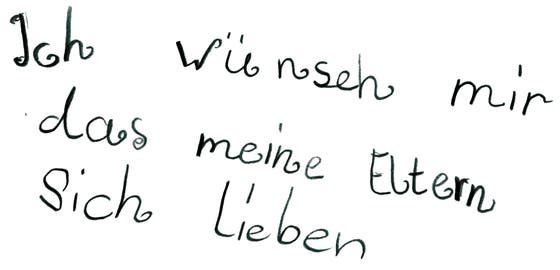 Ich wünsch mir
das meine Eltern
Sich lieben